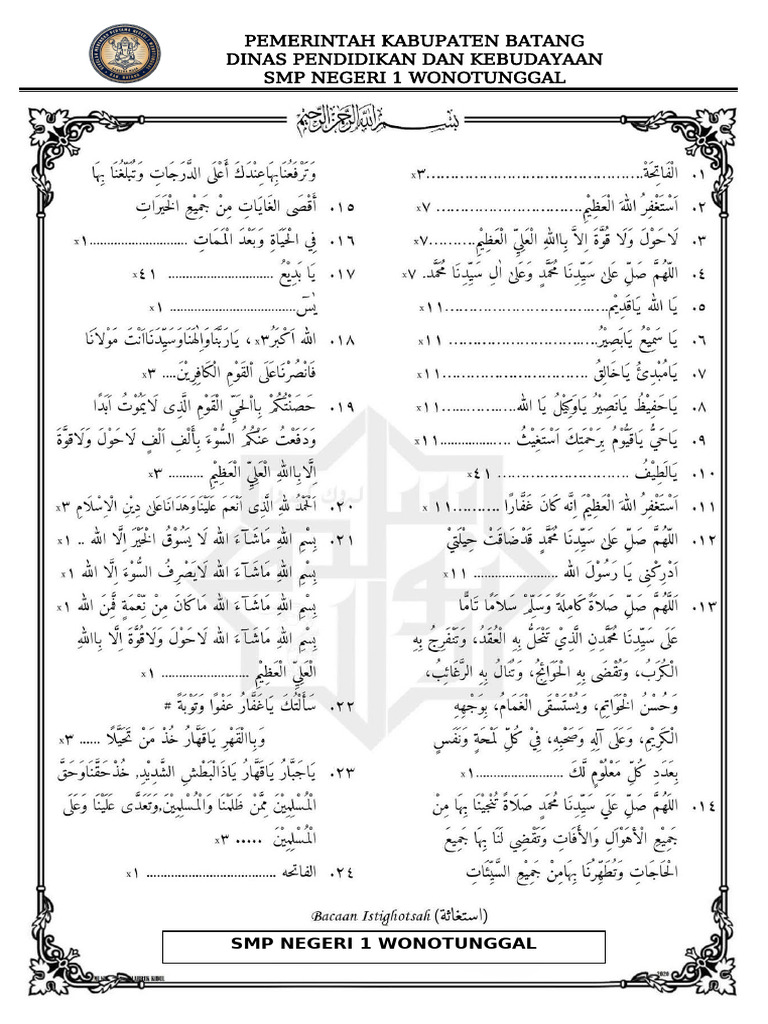 PEMERINTAH KABUPATEN BATANG
DINAS PENDIDIKAN DAN KEBUDAYAAN
SMP NEGERI 1 WONOTUNGGAL
بِسْمِ اللهِ الرَّحْمٰنِ الرَّحِيْمِ
١. اَلْفَاتِحَةْ.............................................x٣
٢. اَسْتَغْفِرُ اللهَ الْعَظِيْمِ............................ x٧
٣. لَاحَوْلَ وَلَا قُوَّةَ اِلاَّ بِاللهِ الْعَلِيِّ الْعَظِيْمِ..........x٧
٤. اَللّٰهُمَّ صَلِّ عَلىٰ سَيِّدِنَا مُحَمَّدٍ وَعَلىٰ اٰلِ سَيِّدِنَا مُحَمَّد. x٧
٥. يَا الله يَاقَدِيْم..................................x١١
٦. يَا سَمِيْعُ يَابَصِيْرُ.............................. x١١
٧. يَامُبْدِئُ يَاخَالِقُ ..............................x١١
٨. يَاحَفِيْظُ يَانَصِيْرُ يَاوَكِيْلُ يَا الله....................x١١
٩. يَاحَيُّ يَاقَيُّوْمُ بِرَحْمَتِكَ اَسْتَغِيْثُ ...................x١١
١٠. يَالَطِيْفُ .......................... x٤١
١١. اَسْتَغْفِرُ اللهَ الْعَظِيْمَ اِنَّه كَانَ غَفَّارًا .......... x١١
١٢. اَللّٰهُمَّ صَلِّ عَلىٰ سَيِّدِنَا مُحَمَّدٍ قَدْضَاقَتْ حِيْلَتِيْ
اَدْرِكْنِى يَا رَسُوْلَ الله ........................ x١١
١٣. اَللَّهُمَّ صَلِّ صَلَاةً كَامِلَةً وَسَلِّمْ سَلَامًا تَامًّا
عَلَى سَيِّدِنَا مُحَمَّدِنِ الَّذِيْ تَنْحَلُّ بِهِ الْعُقَدُ، وَتَنْفَرِجُ بِهِ
الْكُرَبُ، وَتُقْضَى بِهِ الْحَوَائِجُ، وَتُنَالُ بِهِ الرَّغَائِبُ،
وَحُسْنُ الْخَوَاتِمِ، وَيُسْتَسْقَى الْغَمَامُ، بِوَجْهِهِ
الْكَرِيْمِ، وَعَلَى آلِهِ وَصَحْبِهِ، فِيْ كُلِّ لَمْحَةٍ وَنَفَسٍ
بِعَدَدِ كُلِّ مَعْلُوْمٍ لَّكَ .........................x١
١٤. اَللّٰهُمَّ صَلِّ عَلَي سَيِّدِنَا مُحَمَدٍ صَلاَةً تُنْجِيْنَا بِهَا مِنْ
جَمِيْعِ الْأَهْوَالِ وَالْأَفَاتِ وَتَقْضِي لَنَا بِهَا جَمِيعَ
الْحَاجَاتِ وَتُطَهِّرُنَا بِهَامِنْ جَمِيْعِ السَّيِّئَاتِ
وَتَرْفَعُنَابِهَاعِنْدَكَ أَعْلَى الدَّرَجَاتِ وَتُبَلِّغُنَا بِهَا
١٥. أَقْصَى الغَايَاتِ مِنْ جَمِيْعِ الْخَيْرَاتِ
١٦. فِي الْحَيَاةِ وَبَعْدَ الْمَمَاتِ ............................x١
١٧. يَا بَدِيْعُ .............................. x٤١
يٰسٓ.................................... x١
١٨. الله اَكْبَرُx٣ ، يَارَبَّنَاوَاِلٰهَنَاوَسَيِّدَنَااَنْتَ مَوْلَانَا
فَانْصُرْنَاعَلَى الْقَوْمِ الْكَافِرِيْنَ.... x٣
١٩. حَصَنْتُكُمْ بِااْلحَيِّ الْقَوْمِ الَّذِى لَايَمُوْتُ اَبَدًا
وَدَفَعْتُ عَنْكُمُ السُّوْءَ بِأَلْفِ اَلْفٍ لَاحَوْلَ وَلَاقُوَّةَ
اِلَّابِااللهِ الْعَلِيِّ الْعَظِيْمِ .......... x٣
٢٠. اَلْحَمْدُ لِلهِ الَّذِى اَنْعَمَ عَلَيْنَاوَهَدَانَاعَلىٰ دِيْنِ الْاِسْلَامِ x٣
٢١. بِسْمِ اللهِ مَاشَآءَ الله لَا يَسُوْقُ الْخَيْرَ اِلَّا الله .. x١
بِسْمِ اللهِ مَاشَآءَ الله لَايَصْرِفُ السُّوْءَ اِلَّا الله x١
بِسْمِ اللهِ مَاشَآءَ الله مَاكَانَ مِنْ نِعْمَةٍ فَمِنَ الله x١
بِسْمِ اللهِ مَاشَآءَ الله لَاحَوْلَ وَلَاقُوَّةَ اِلَّا بِااللهِ
الْعَلِيِّ الْعَظِيْمِ ......................... x١
٢٢. سَأَلْتُكَ يَاغَفَّارُ عَفْوًا وَتَوْبَةً #
وَبِاالْقَهْرِ يَاقَهَّارُ خُذْ مَنْ تَحَيَّلَا ...... x٣
٢٣. يَاجَبَّارُ يَاقَهَّارُ يَاذَالْبَطْشِ الشَّدِيْدِ, خُذْ حَقَّنَاوَحَقَّ
الْمُسْلِمِيْنَ مِمَّنْ ظَلَمْنَا وَالْمُسْلِمِيْنَ,وَتَعَدَّى عَلَيْنَا وَعَلَى
الْمُسْلِمِيْنَ ..... x٣
٢٤. الفاتحه ..................................... x١
Bacaan Istighotsah (استغاثة)
SMP NEGERI 1 WONOTUNGGAL
2020